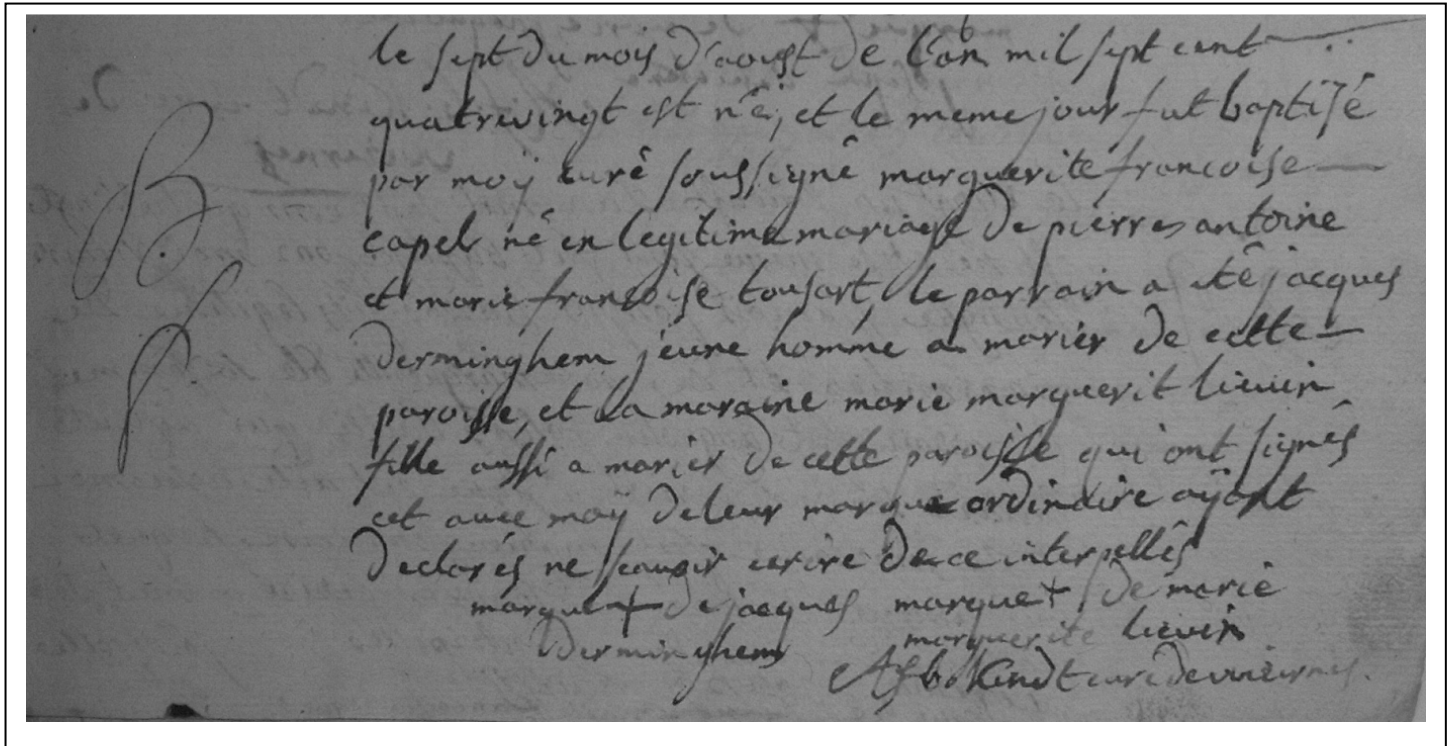 le sept du mois d'aoust de l'an mil sept cent
quatrevingt est né, et le meme jour fut baptisé
par moÿ curé soussigné marguerite francoise
capel né en legitime mariage de pierre antoine
et marie francoise tousart, le parrain a eté jacques
derminghem jeune homme a marier de cette
paroisse, et la maraine marie marguerit lieuin
fille aussi a marier de cette paroisse qui ont signés
cet avec moÿ de leur marque ordinaire aÿant
declarés ne scavoir ecrire de ce interpellés
marque + de jacques marque + de marie
derminghem marguerite lieuin
curé de